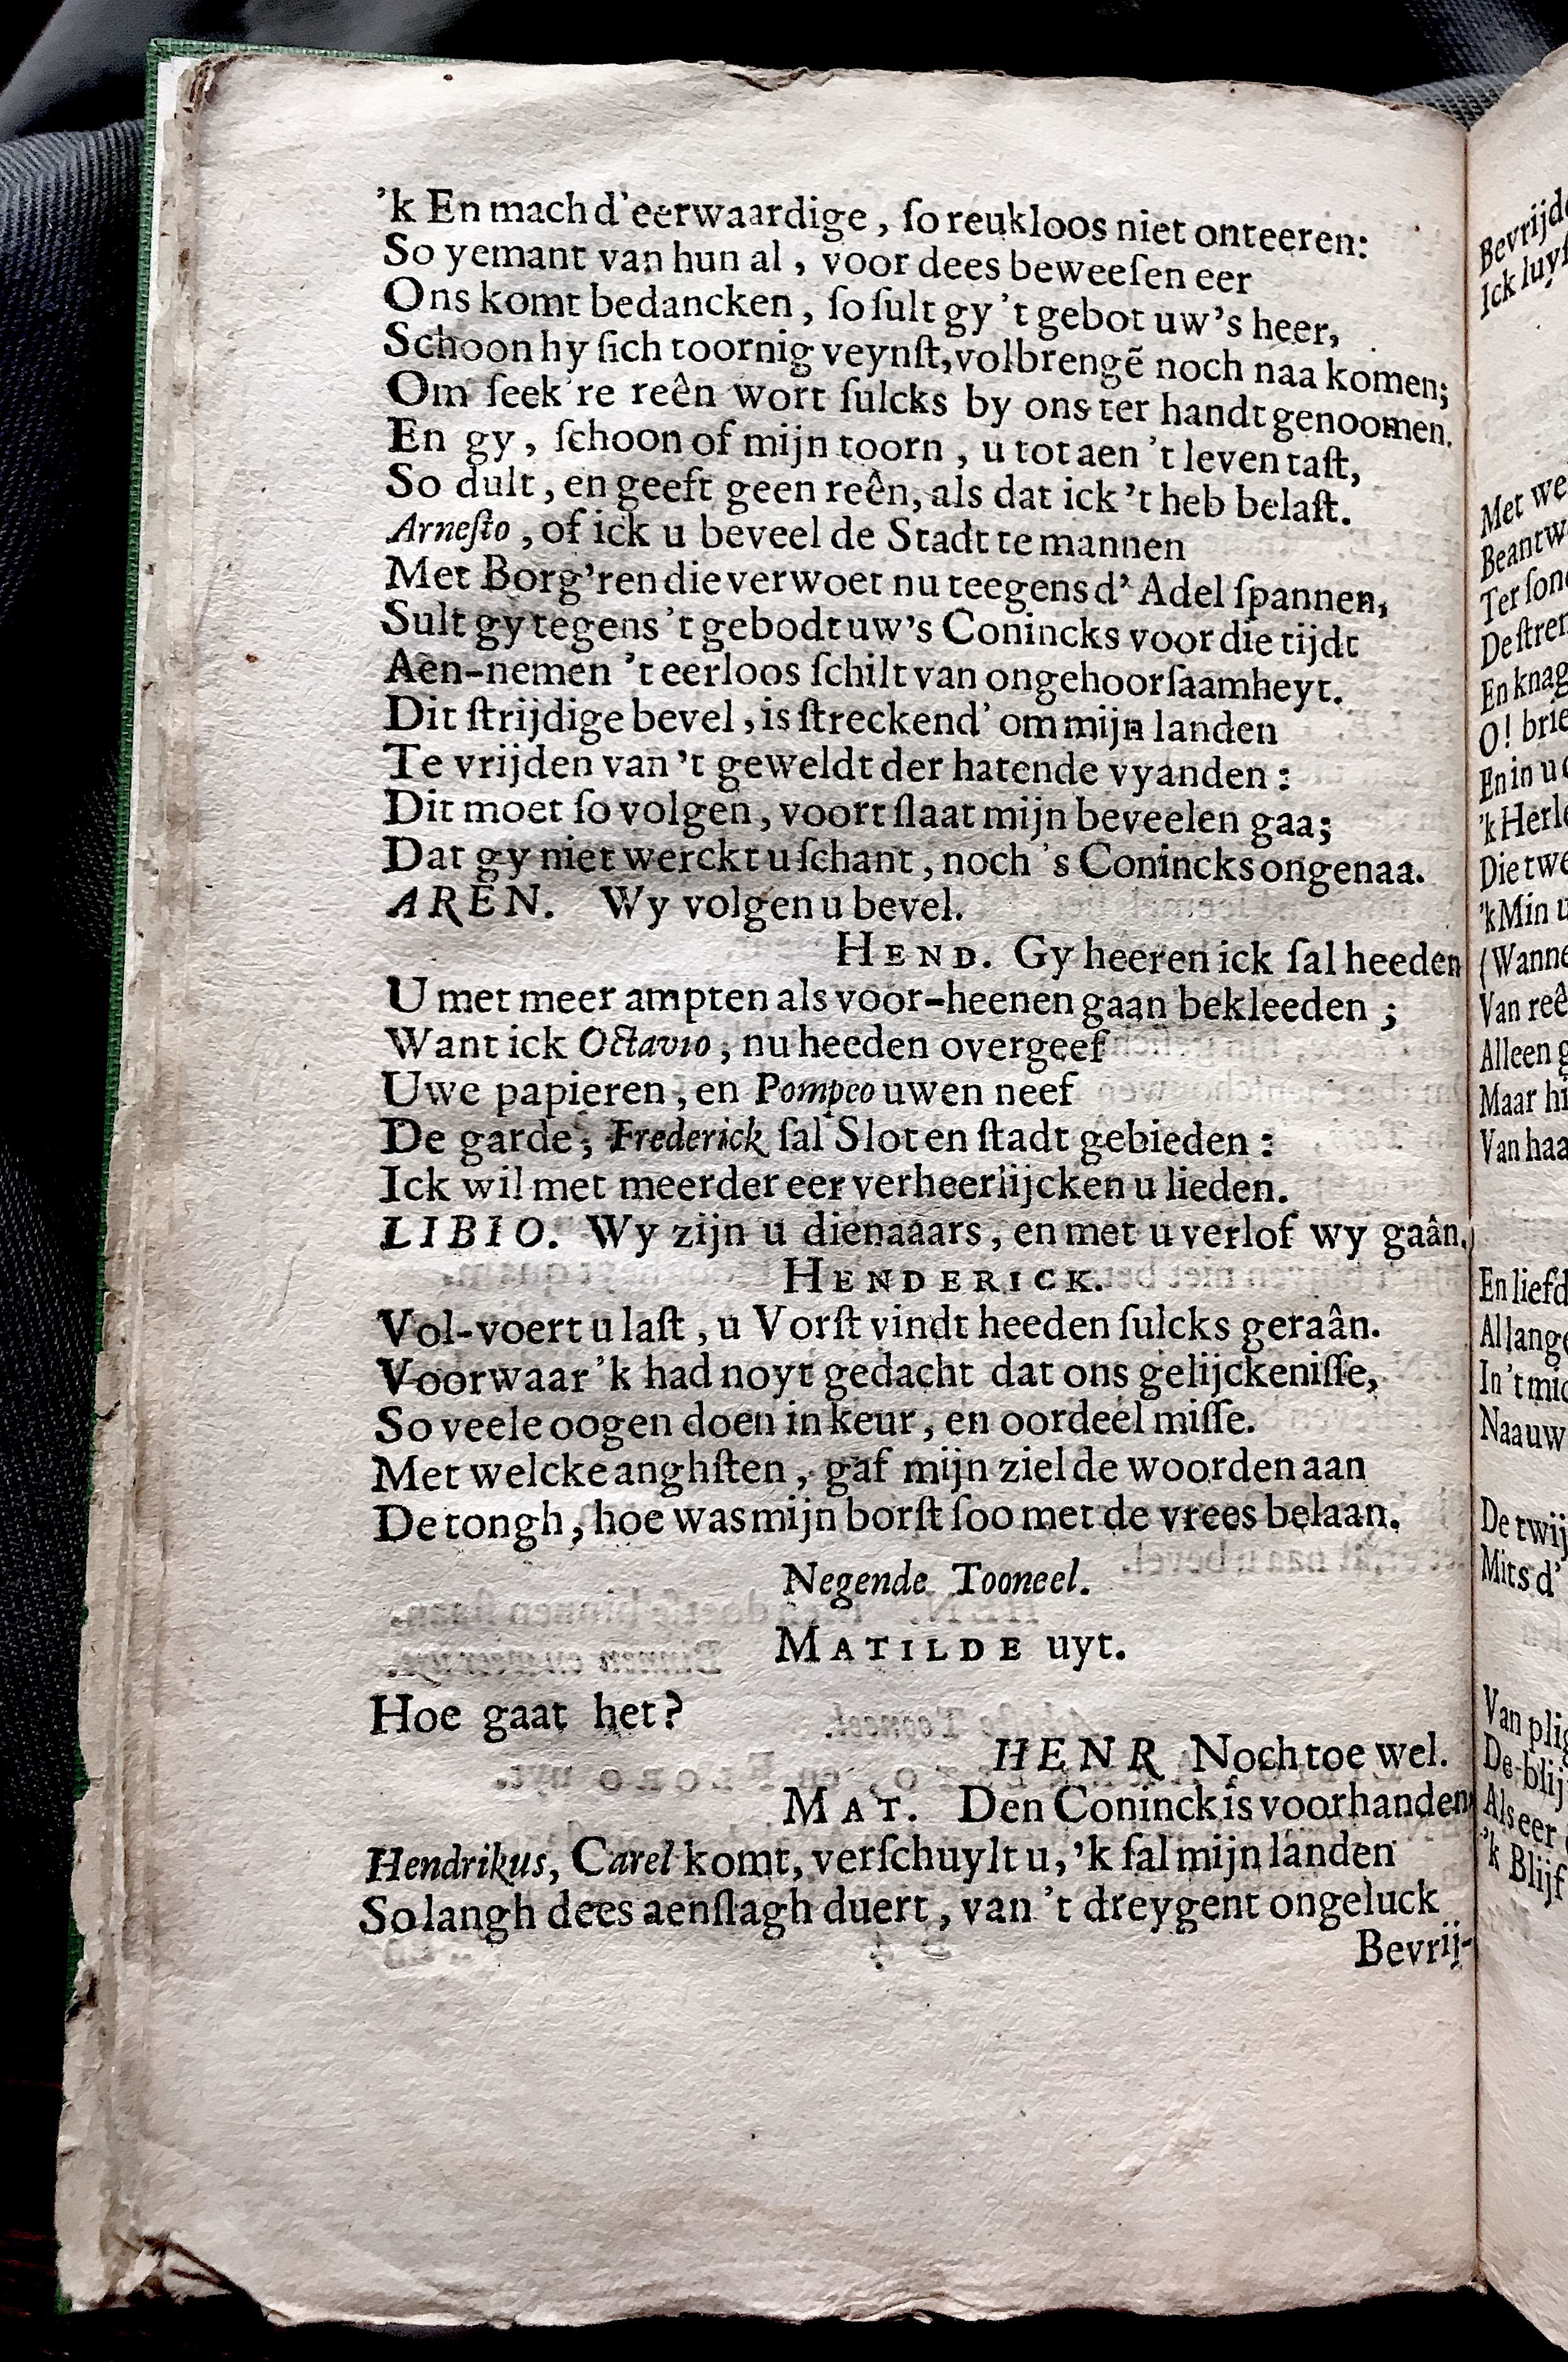 'k En mach d'eerwaardige, ſo reukloos niet onteeren:
So yemant van hun al, voor dees beweeſen eer
Ons komt bedancken, ſo ſult gy 't gebot uw's heer,
Schoon hy ſich toornig veynſt, volbrengẽ noch naa komen;
Om ſeek're reên wort ſulcks by ons ter handt genoomen.
En gy, ſchoon of mijn toorn, u tot aen 't leven taſt,
So dult, en geeft geen reên, als dat ick 't heb belaſt.
Arneſto, of ick u beveel de Stadt te mannen
Met Borg'ren die verwoet nu teegens d' Adel ſpannen,
Sult gy tegens 't gebodt uw's Conincks voor die tijdt
Aen-nemen 't eerloos ſchilt van ongehoorſaamheyt.
Dit ſtrijdige bevel, is ſtreckend' om mijn landen
Te vrijden van 't geweldt der hatende vyanden:
Dit moet ſo volgen, voort ſlaat mijn beveelen gaa;
Dat gy niet werckt u ſchant, noch 's Conincks ongenaa.
AREN. Wy volgen u bevel.
HEND. Gy heeren ick ſal heeden
U met meer ampten als voor-heenen gaan bekleeden;
Want ick Octavio, nu heeden overgeef
Uwe papieren, en Pompeo uwen neef
De garde; Frederick ſal Slot en ſtadt gebieden:
Ick wil met meerder eer verheerlijcken u lieden.
LIBIO. Wy zijn u dienaaars, en met u verlof wy gaân.
HENDERICK.
Vol-voert u laſt, u Vorſt vindt heeden ſulcks geraân.
Voorwaar 'k had noyt gedacht dat ons gelijckeniſſe,
So veele oogen doen in keur, en oordeel miſſe.
Met welcke anghſten, gaf mijn ziel de woorden aan
De tongh, hoe was mijn borſt ſoo met de vrees belaan.
Negende Tooneel.
MATILDE uyt.
Hoe gaat het?
HENR. Noch toe wel.
MAT. Den Coninck is voorhanden
Hendrikus, Carel komt, verſchuylt u, 'k ſal mijn landen
So langh dees aenſlagh duert, van 't dreygent ongeluck
Bevrij-
Bevrijd
Ick luy
Met we
Beantw
Ter ſon
De ſtren
En knag
O! brie
En in u
'k Herl
Die twe
'k Min u
(Wanne
Van reê
Alleen g
Maar hi
Van haa
En liefd
Al lange
In 't mid
Naauw
De twij
Mits d'
Van plig
De blij
Als eer
'k Blijf